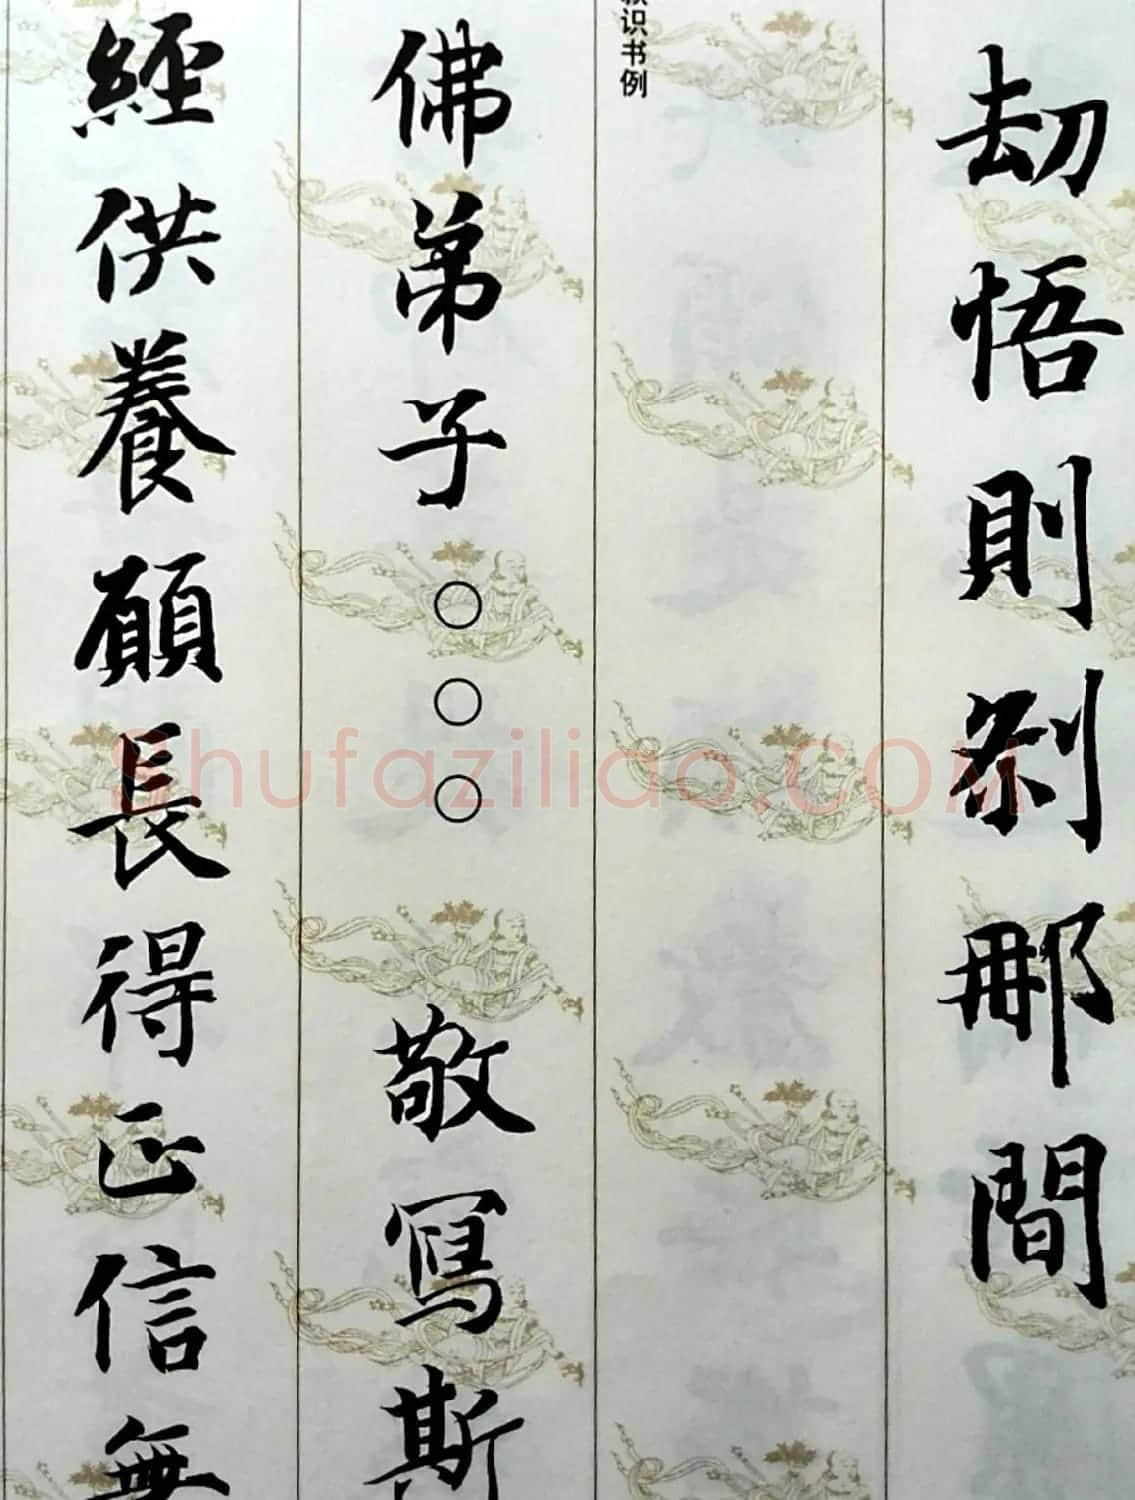 劫悟則剎那間
识书例
佛弟子○○○敬寫斯
經供養願長得正信無
Shufaziliao.COM